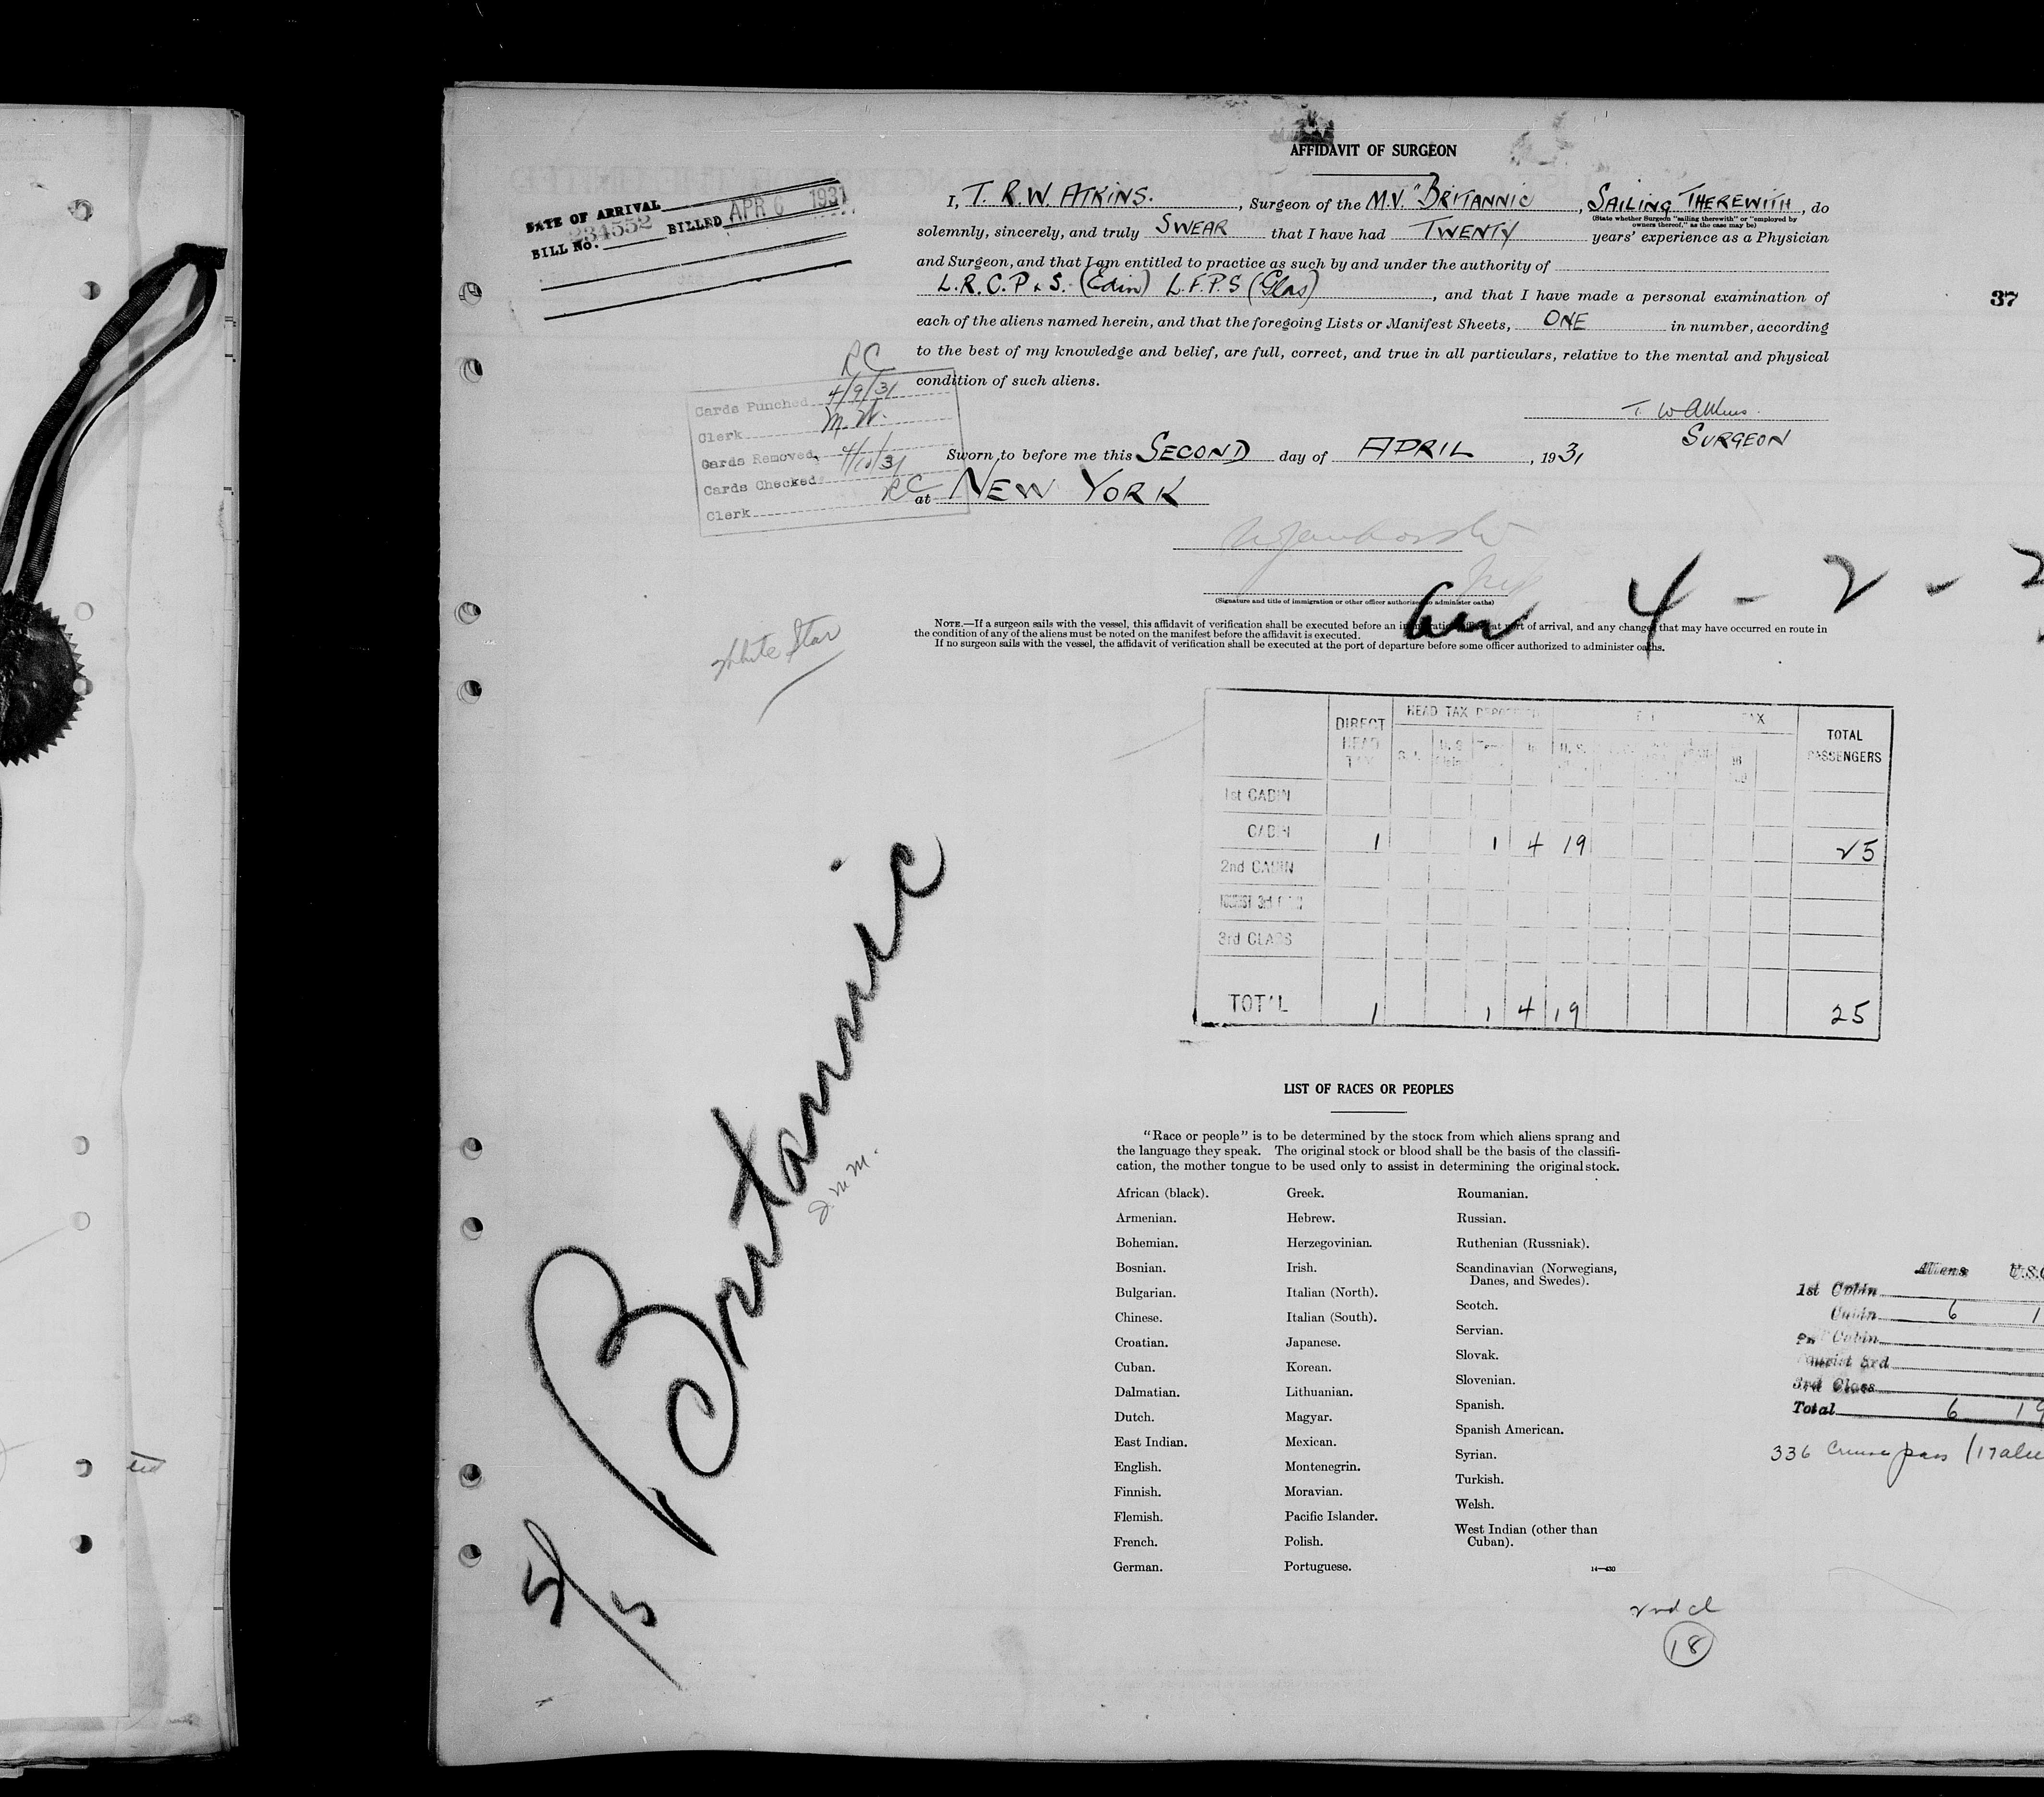 AFFIDAVIT OF SURGEON
I, T. R. W. ATKINS. , Surgeon of the M.V. "BRITANNIC , SAILING THEREWITH , do
(State whether Surgeon "sailing therewith" or "employed by
owners thereof," as the case may be)
solemnly, sincerely, and truly SWEAR that I have had TWENTY years' experience as a Physician
and Surgeon, and that I am entitled to practice as such by and under the authority of
L.R.C.P & S. (Edin) L.F.P.S (Glas) , and that I have made a personal examination of
each of the aliens named herein, and that the foregoing Lists or Manifest Sheets, ONE in number, according
to the best of my knowledge and belief, are full, correct, and true in all particulars, relative to the mental and physical
condition of such aliens.
SURGEON
Sworn to before me this SECOND day of APRIL , 1931
at NEW YORK
(Signature and title of immigration or other officer authorized to administer oaths)
NOTE.—If a surgeon sails with the vessel, this affidavit of verification shall be executed before an immigration officer at port of arrival, and any changes that may have occurred en route in
the condition of any of the aliens must be noted on the manifest before the affidavit is executed.
If no surgeon sails with the vessel, the affidavit of verification shall be executed at the port of departure before some officer authorized to administer oaths.
DATE OF ARRIVAL
BILL No. 234552 BILLED APR 6 1931
RC
Cards Punched 4/9/31
Clerk M.W.
Cards Removed
Cards Checked 4/10/31
Clerk RC
37
4 - 2 -
White Star
DIRECT HEAD TAX
HEAD TAX
TAX
TOTAL PASSENGERS
1st CABIN
CABIN 1 1 4 19 25
2nd CABIN
3rd CLASS
TOTAL 1 1 4 19 25
Britannic
5/5
LIST OF RACES OR PEOPLES
"Race or people" is to be determined by the stock from which aliens sprang and
the language they speak. The original stock or blood shall be the basis of the classifi-
cation, the mother tongue to be used only to assist in determining the original stock.
African (black).
Armenian.
Bohemian.
Bosnian.
Bulgarian.
Chinese.
Croatian.
Cuban.
Dalmatian.
Dutch.
East Indian.
English.
Finnish.
Flemish.
French.
German.
Greek.
Hebrew.
Herzegovinian.
Irish.
Italian (North).
Italian (South).
Japanese.
Korean.
Lithuanian.
Magyar.
Mexican.
Montenegrin.
Moravian.
Pacific Islander.
Polish.
Portuguese.
Roumanian.
Russian.
Ruthenian (Russniak).
Scandinavian (Norwegians,
Danes, and Swedes).
Scotch.
Servian.
Slovak.
Slovenian.
Spanish.
Spanish American.
Syrian.
Turkish.
Welsh.
West Indian (other than
Cuban).
14—430
Aliens
1st Cabin
Cabin 6 1
Cabin
3rd
3rd Class
Total 6 19
336 Cruise pass
2nd cl
18